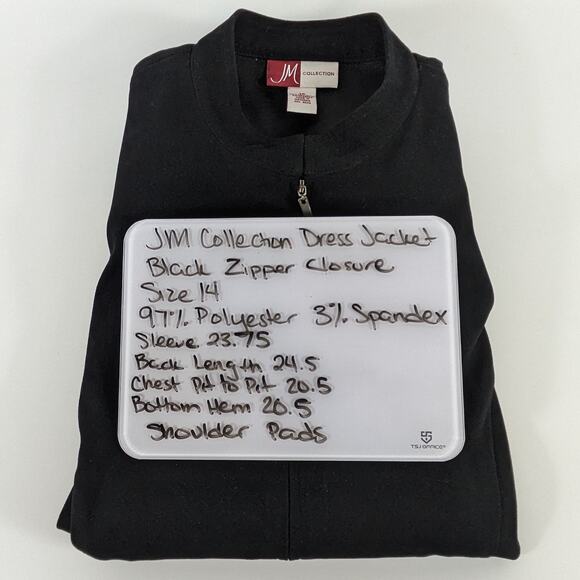 JM COLLECTION
JM Collection Dress Jacket
Black Zipper Closure
Size 14
97% Polyester 3% Spandex
Sleeve 23.75
Back Length 24.5
Chest Pit to Pit 20.5
Bottom Hem 20.5
Shoulder Pads
TSJ OFFICE